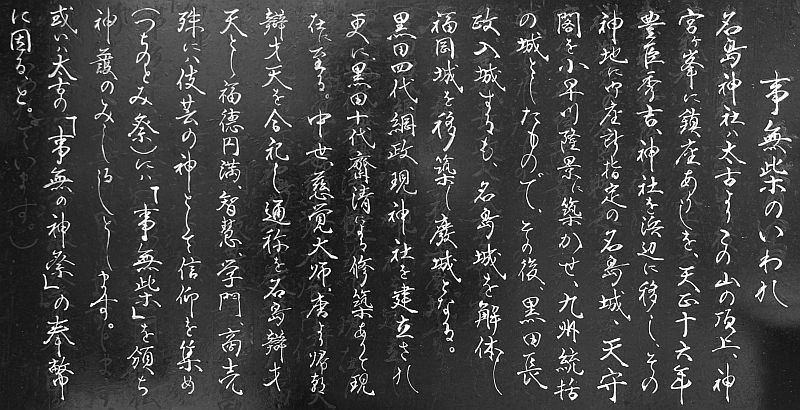 事無柴のいわれ
名島神社ハ太古よりこの山の頂上、神
宮ヶ峯に鎮座ありしを、天正十六年
豊臣秀吉、神社を浜辺に移し、その
神地に中座計指定の名島城、天守
閣を小早川隆景に築かせ、九州統括
の城としたもので、その後、黒田長
政入城するも、名島城を解体し
福岡城を移築し廃城となる。
黒田四代綱政現神社を建立され
更に黒田十代齊清による修築あって現
在に至る。中世、慈覚大師、唐より帰朝
辯才天を合祀し通称を名島辯才
天とし福徳円満、智慧、学門、商売
殊にハ伎芸の神として信仰を集め
(つちのとみ祭)にハ「事無柴」を頒ち
神護のみしるしとします。
或いハ太古の「事無の神祭」の奉幣
に因ると。